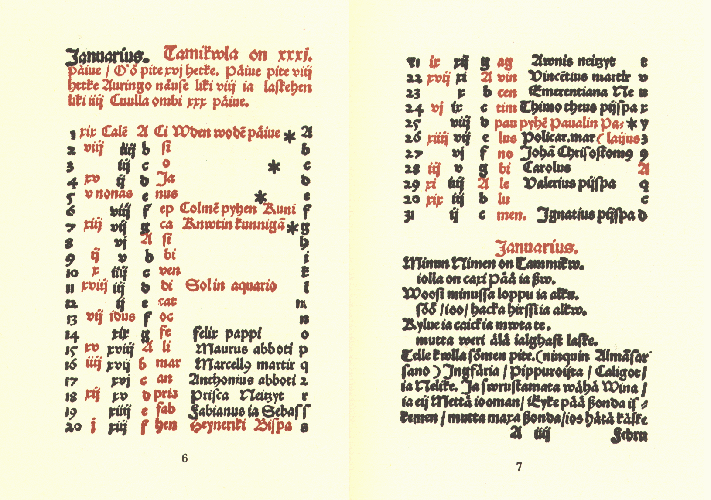 Januarius. Tamikwla on xxxi.
päiue / Oö pite xvj hetke. Päiue pite viij
hetke Auringo nause liki viij ia laskehen
liki iiij Cuulla ombi xxx päiue.
1 xix Calē A Ci Wden wodē päiue * A
2 viij iiij b si b
3 iij c o * c
4 xv ij d Ja d
5 v nonas e nus * e
6 viij f ep Colmē pyhen Kuni f
7 xiij vij g ca Knwtin kunnigā * g
8 vj A si h
9 ij v b bi i
10 x iiij c ven k
11 xviij iij d di Solin aquario l
12 ij e cat m
13 vij idus f oc n
14 xix g fe felix pappi o
15 xv xviij A li Maurus abboti p
16 iiij xvij b mar Marcellꝰ martir q
17 xvj c an Anthonius abboti 2
18 xij xv d pris Prisca Neitzyt r
19 xiiij e fab Fabianus ia Sebas ſ
20 j xiij f hen Heynriki Bispa s
21 ix xij g ag Awnis neitzyt t
22 xvij xi A vin Vincētius martir v
23 x b cen Emerentiana Ne u
24 vj ix c tim Thimotheus pijspa x
25 viij d pau pyhē Paualin Pa- * y
26 xiiij vij e lus Policar. mar ( laijus 3
27 vj f no Johā Chrisostomꝰ 9
28 iij v g bi Carolus A
29 xi iiij A le Valerius pijspa q
30 xix iij b lu c
31 ij c men. Ignatius pijspa d
Januarius.
Minun Nimen on Tammikw.
iolla on caxi Pää ia ßw.
Woosi minussa loppu ia alku.
söö / ioo / hacka hirssiä alkw.
Kylue ia caickia mwta te.
mutta weri älä ialghast laske.
Telle kwlla sömen pite. (ninquin Almäsar
sano ) Ingfäria / Pippuroijta / Caligot /
ia Nelike. Ja swrustamata wähä Wina /
ia eij Mettä iooman / Eyke pää ßonda is-
kemen / mutta maxa ßonda / ios hätä käske
A iiij Febru
6
7